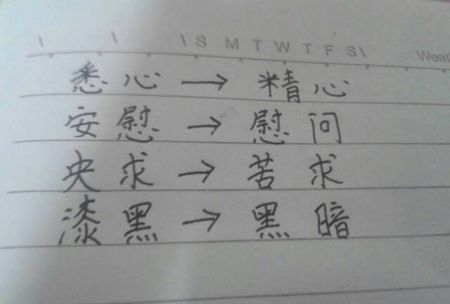 I I I S M T W T F S I Week
悉心→精心
安慰→慰问
央求→苦求
漆黑→黑暗